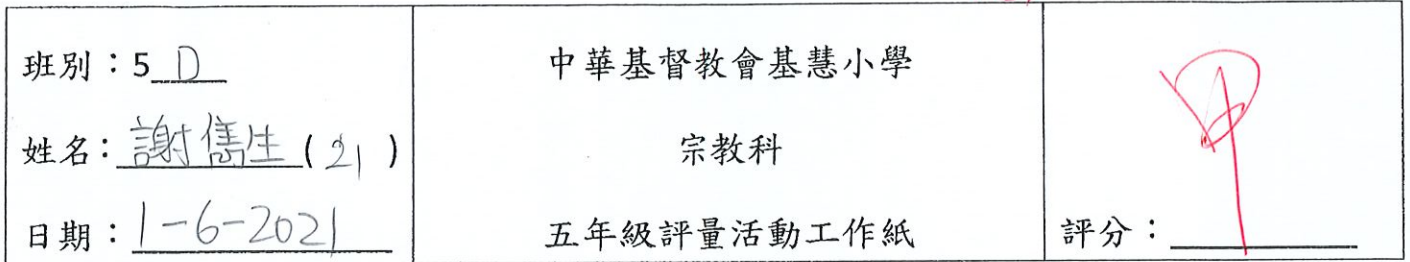 班別：5 D
姓名：謝雋生 ( 21 )
日期：1-6-2021
中華基督教會基慧小學
宗教科
五年級評量活動工作紙
評分：甲